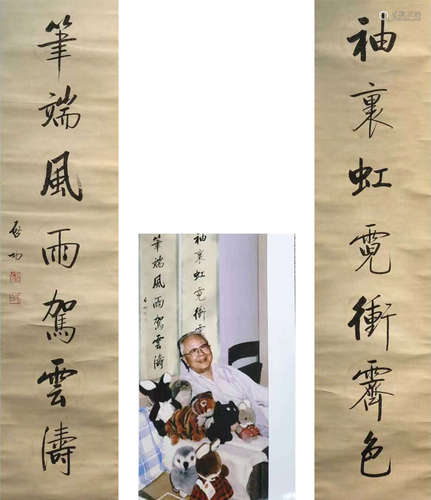 袖裏虹霓衝霽色
筆端風雨駕雲濤
啟功
袖裏虹霓衝霽
筆端風雨駕雲濤